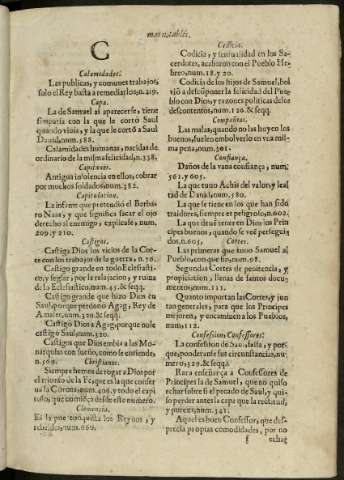 mas notables.
C
Calamidades.
Las publicas, y comunes trabajos,
solo el Rey basta a remediarlos, n. 219.
Capa.
La de Samuel al aparecerse, tiene
simpatia con la que le cortó Saul
quando vivia, y la que le cortó a Saul
David, num. 588.
Calamidades humanas, nacidas de
ordinario de la misma felicidad, n. 338.
Capitanes.
Antigua insolencia en ellos, cobrar
por muchos soldados, num. 382.
Capitulacion.
La infame que pretendió el Barba-
ro Naas, y que significa sacar el ojo
derecho al enemigo, explicase, num.
209. y 210.
Castigos.
Castiga Dios los vicios de la Cor-
te con los trabajos de la guerra, n. 70.
Castigo grande en todo Eclesiasti-
co, y seglar, por la relaxacion, y ruina
de lo Eclesiastico, num. 45. & seqq.
Castigo grande que hizo Dios en
Saul, porque perdonó Agag, Rey de
Amalec, num. 320. & seqq.
Castigó Dios a Agag, porque no le
castigó Saul, num. 320.
Castigos que Dios embia a las Mo-
narquias con sueño, como se entiende,
n. 569.
Christianos.
Siempre hemos de rogar a Dios por
el triunfo de la Fe, que es la que confir-
ma la Corona, num. 408. y todo el capi-
tulo, que comiença desde este numero.
Clemencia.
Es la que conquista los Reynos, y
rebeldes, num. 660.
Codicia.
Codicia, y sensualidad en los Sa-
cerdotes, acabaron con el Pueblo He-
breo, num. 18. y 20.
Codicia de los hijos de Samuel, bol
vió a descomponer la felicidad del Pue-
blo con Dios, y razones politicas de los
descontentos, num. 120. & seqq.
Compañias.
Las malas, quando no las huyen los
buenos, suelen embolverlo en vna mis-
ma pena, num. 301.
Confiança.
Daños de la vana confiança, num.
561. y 605.
La que tuuo Achis del valor, y leal-
tad de David, num. 580.
La que se tiene en los que han sido
traidores, siempre es peligrosa, n. 602.
La que deué tener en Dios los Prin
cipes buenos, quando se vén persegui-
dos, n. 605.
Cortes.
Las primeras que tuuo Samuel al
Pueblo, con que fin, num. 98.
Segundas Cortes de penitencia, y
propiciacion, llenas de santos docu-
mentos, num. 111.
Quanto importan las Cortes, y jun
tas generales, para que los Principes
mejoren, y encaminen a los Pueblos,
num. 112.
Confesion, Confessores.
La confesion de Saul, falsa, y por-
que, ponderanse sus circunstancias, nu-
mero 339. & seqq.
Rara enseñança a Confessores de
Principes la de Samuel, que no quiso
echar sobre si el pecado de Saul, y quis-
so perder antes la capa que la rectitud,
y pureza, num. 341.
Aquel es buen Confessor, que des-
precia propias comodidades, por no
echar